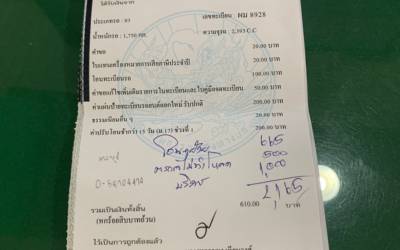 ได้รับเงินจาก
ประเภทรถ : 03 เลขทะเบียน ผม 8928
น้ำหนักรถ : 1,750 กก. ความจุรวม 2,393 C.C
ค่าขอ 20.00 บาท
ใบแทนเครื่องหมายการเสียภาษีประจำปี 20.00 บาท
โอนทะเบียนรถ 100.00 บาท
ค่าขอแก้ไขเพิ่มเติมรายการในทะเบียนและใบคู่มือจดทะเบียน 50.00 บาท
ค่าแผ่นป้ายทะเบียนรถยนต์ออกใหม่ รับปกติ 200.00 บาท
ธรรมเนียมอื่น ๆ 20.00 บาท
ค่าปรับโอนช้ากว่า 15 วัน (ม.17) ช่วงที่ 1 200.00 บาท
665
500
1,000
2,165
รวมเป็นเงินทั้งสิ้น 610.00 บาท
(หกร้อยสิบบาทถ้วน)
ไว้เป็นการถูกต้องแล้ว